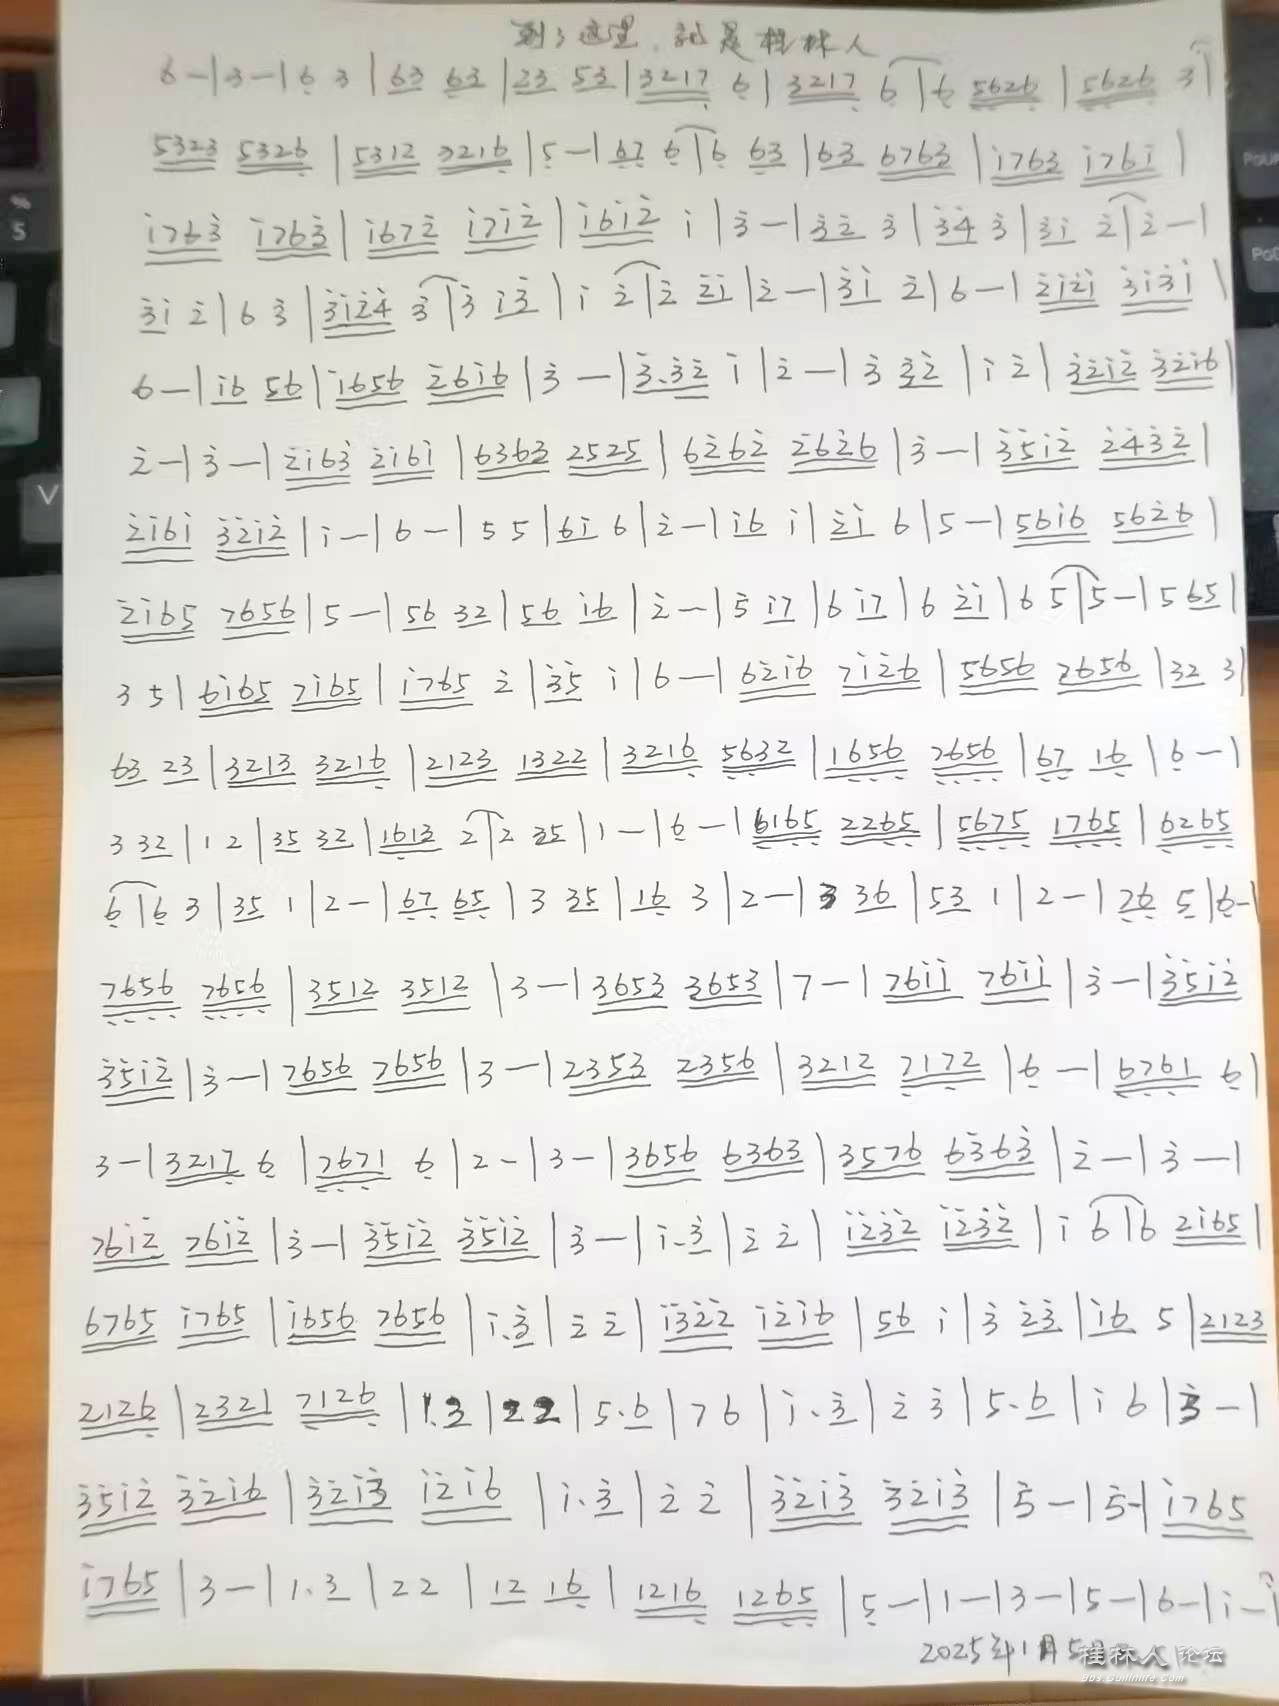 到了这里，就是桂林人
6 — | 3 — | 6 3 | 63 63 | 23 53 | 3217 6 | 3217 6 | 6 5626 | 5626 3 |
5323 5326 | 5312 3216 | 5 — | 67 6 | 6 63 | 63 6763 | i763 i76i |
i763 i763 | i672 i7i2 | i6i2 i | 3 — | 32 3 | 34 3 | 3i 2 | 2 — |
3i 2 | 6 3 | 3i24 3 | 3 i3 | i 2 | 2 2i | 2 — | 3i 2 | 6 — | 2i2i 3i3i |
6 — | i6 56 | i656 26i6 | 3 — | 3.32 i | 2 — | 3 32 | i 2 | 32i2 32i6 |
2 — | 3 — | 2i63 2i6i | 6363 2525 | 6262 2626 | 3 — | 35i2 2432 |
2i6i 32i2 | i — | 6 — | 5 5 | 6i 6 | 2 — | i6 i | 2i 6 | 5 — | 56i6 5626 |
2i65 7656 | 5 — | 56 32 | 56 i6 | 2 — | 5 i7 | 6 i7 | 6 2i | 6 5 | 5 — | 5 65 |
3 5 | 6i65 7i65 | i765 2 | 35 i | 6 — | 62i6 7i26 | 5656 7656 | 32 3 |
63 23 | 3213 3216 | 2123 1322 | 3216 5632 | 1656 7656 | 67 16 | 6 — |
3 32 | 1 2 | 35 32 | 1613 2 | 2 35 | 1 — | 6 — | 6165 2265 | 5675 1765 | 6265
6 | 6 3 | 35 1 | 2 — | 67 65 | 3 35 | 16 3 | 2 — | 3 36 | 53 1 | 2 — | 26 5 | 6 — |
7656 7656 | 3512 3512 | 3 — | 3653 3653 | 7 — | 76ii 76ii | 3 — | 35i2
35i2 | 3 — | 7656 7656 | 3 — | 2353 2356 | 3212 7172 | 6 — | 6761 6 |
3 — | 3217 6 | 7671 6 | 2 — | 3 — | 3656 6363 | 3576 6363 | 2 — | 3 — |
76i2 76i2 | 3 — | 35i2 35i2 | 3 — | i.3 | 2 2 | i232 i232 | i 6 | 6 2i65 |
6765 i765 | i656 7656 | i.3 | 2 2 | i322 i2i6 | 56 i | 3 23 | i6 5 | 2123
2126 | 2321 7126 | 1.3 | 22 | 5.6 | 7 6 | i.3 | 2 3 | 5.6 | i 6 | 3 — |
35i2 32i6 | 32i3 i2i6 | i.3 | 2 2 | 32i3 32i3 | 5 — | 5 — | i765
i765 | 3 — | 1.3 | 22 | 12 16 | 1216 1265 | 5 — | 1 — | 3 — | 5 — | 6 — | i — |
2025年1月5日
桂林人论坛
Bbs.Guilinlife.Com